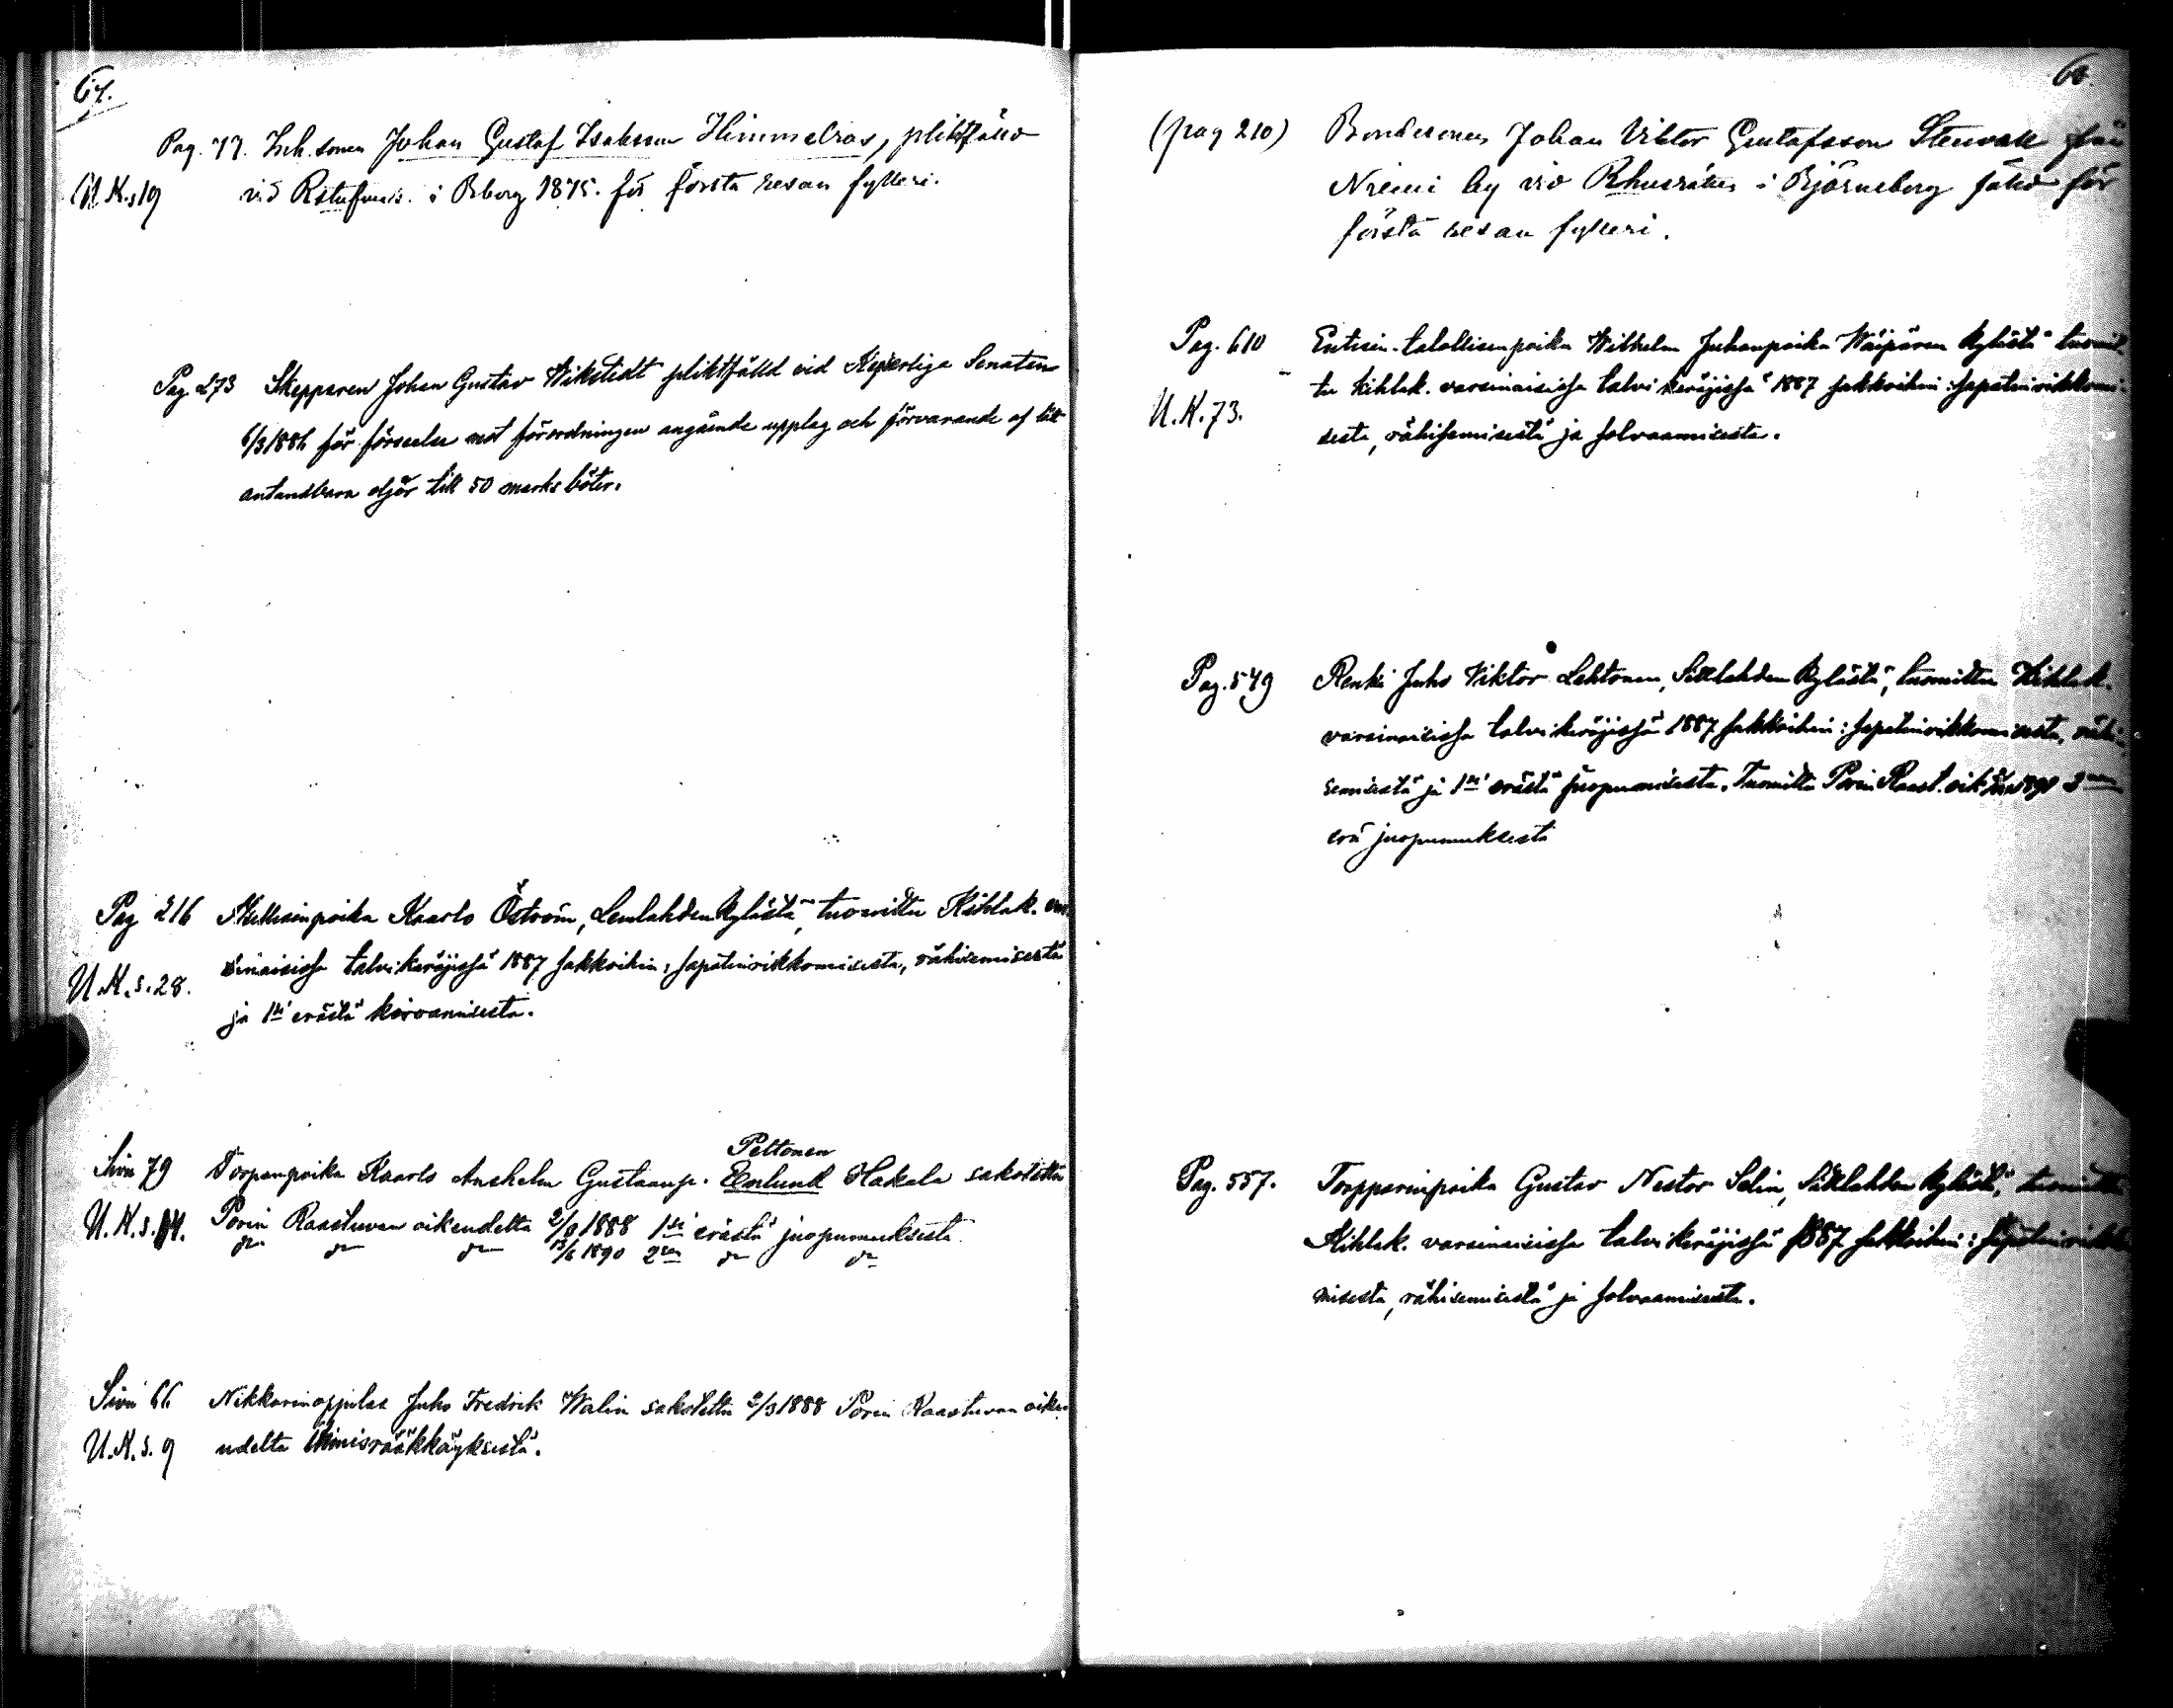 67.
Pag. 77. Inh. sonen Johan Gustaf Isaksson Himmelroos, pliktfälld
U.K.s 19 vid Rstufvur. i Bborg 1875. för första resan fylleri.
Pag 273 Skepparen Johan Gustav Wikstedt pliktfälld vid Kejserliga Senaten
6/3 1886 för förseelse mot förordningen angående upplag och förvarande af lätt
antändbara oljor till 50 marks böter.
Pag 216 Mällisinpoika Kaarlo Öström, Lenlahden kylästä, tuomittu Kihlak. var
U.K.s. 28. sinaisissa talvikäräjissä 1887 sakkoihin: sapatinrikkomisesta, rähisemisestä
ja 1stä erästä kiroamisesta.
Peltonen
Sivu 79 Torpanpoika Kaarlo Anshelm Gustaanp. Enlund Hakala sakotettu
U.K.s. 14. Porin Raastuvan oikeudelta 2/9 1888 1stä erästä juopumuksesta.
dn dn dn 13/6 1890 2sen dn dn
Sivu 66 Nikkarinoppilas Juho Fredrik Walin sakotettu 2/3 1888 Porin Raastuvan oike
U.K.s. 9 udelta ihmisrääkkäyksestä.
(pag 210) Bondesonen Johan Viktor Gustafsson Stenvall från
Niemi by vid Rhusrätten i Björneborg fälld för
första resan fylleri.
Pag. 610 Entisen talollisenpoika Wilhelm Juhanpoika Wäipären kylästä tuomit-
U.K. 73. tu Kihlak. varsinaisissa talvikäräjissä 1887 sakkoihin: sapatinrikkomi-
sesta, rähisemisestä ja solvaamisesta.
Pag. 549 Renki Juho Viktor Lehtonen, Säklahden kylästä, tuomittu Kihlak.
varsinaisissa talvikäräjissä 1887 sakkoihin: sapatinrikkomisesta, rähi-
semisestä ja 1stä erästä juopumisesta. Tuomittu Porin Raast. oik. 1890 2
erä juopumuksesta
Pag. 557. Torpparinpoika Gustav Nestor Selin, Säklahden kylästä, tuomittu
Kihlak. varsinaisissa talvikäräjissä 1887 sakkoihin: sapatinrikko
misesta, rähisemisestä ja solvaamisesta.